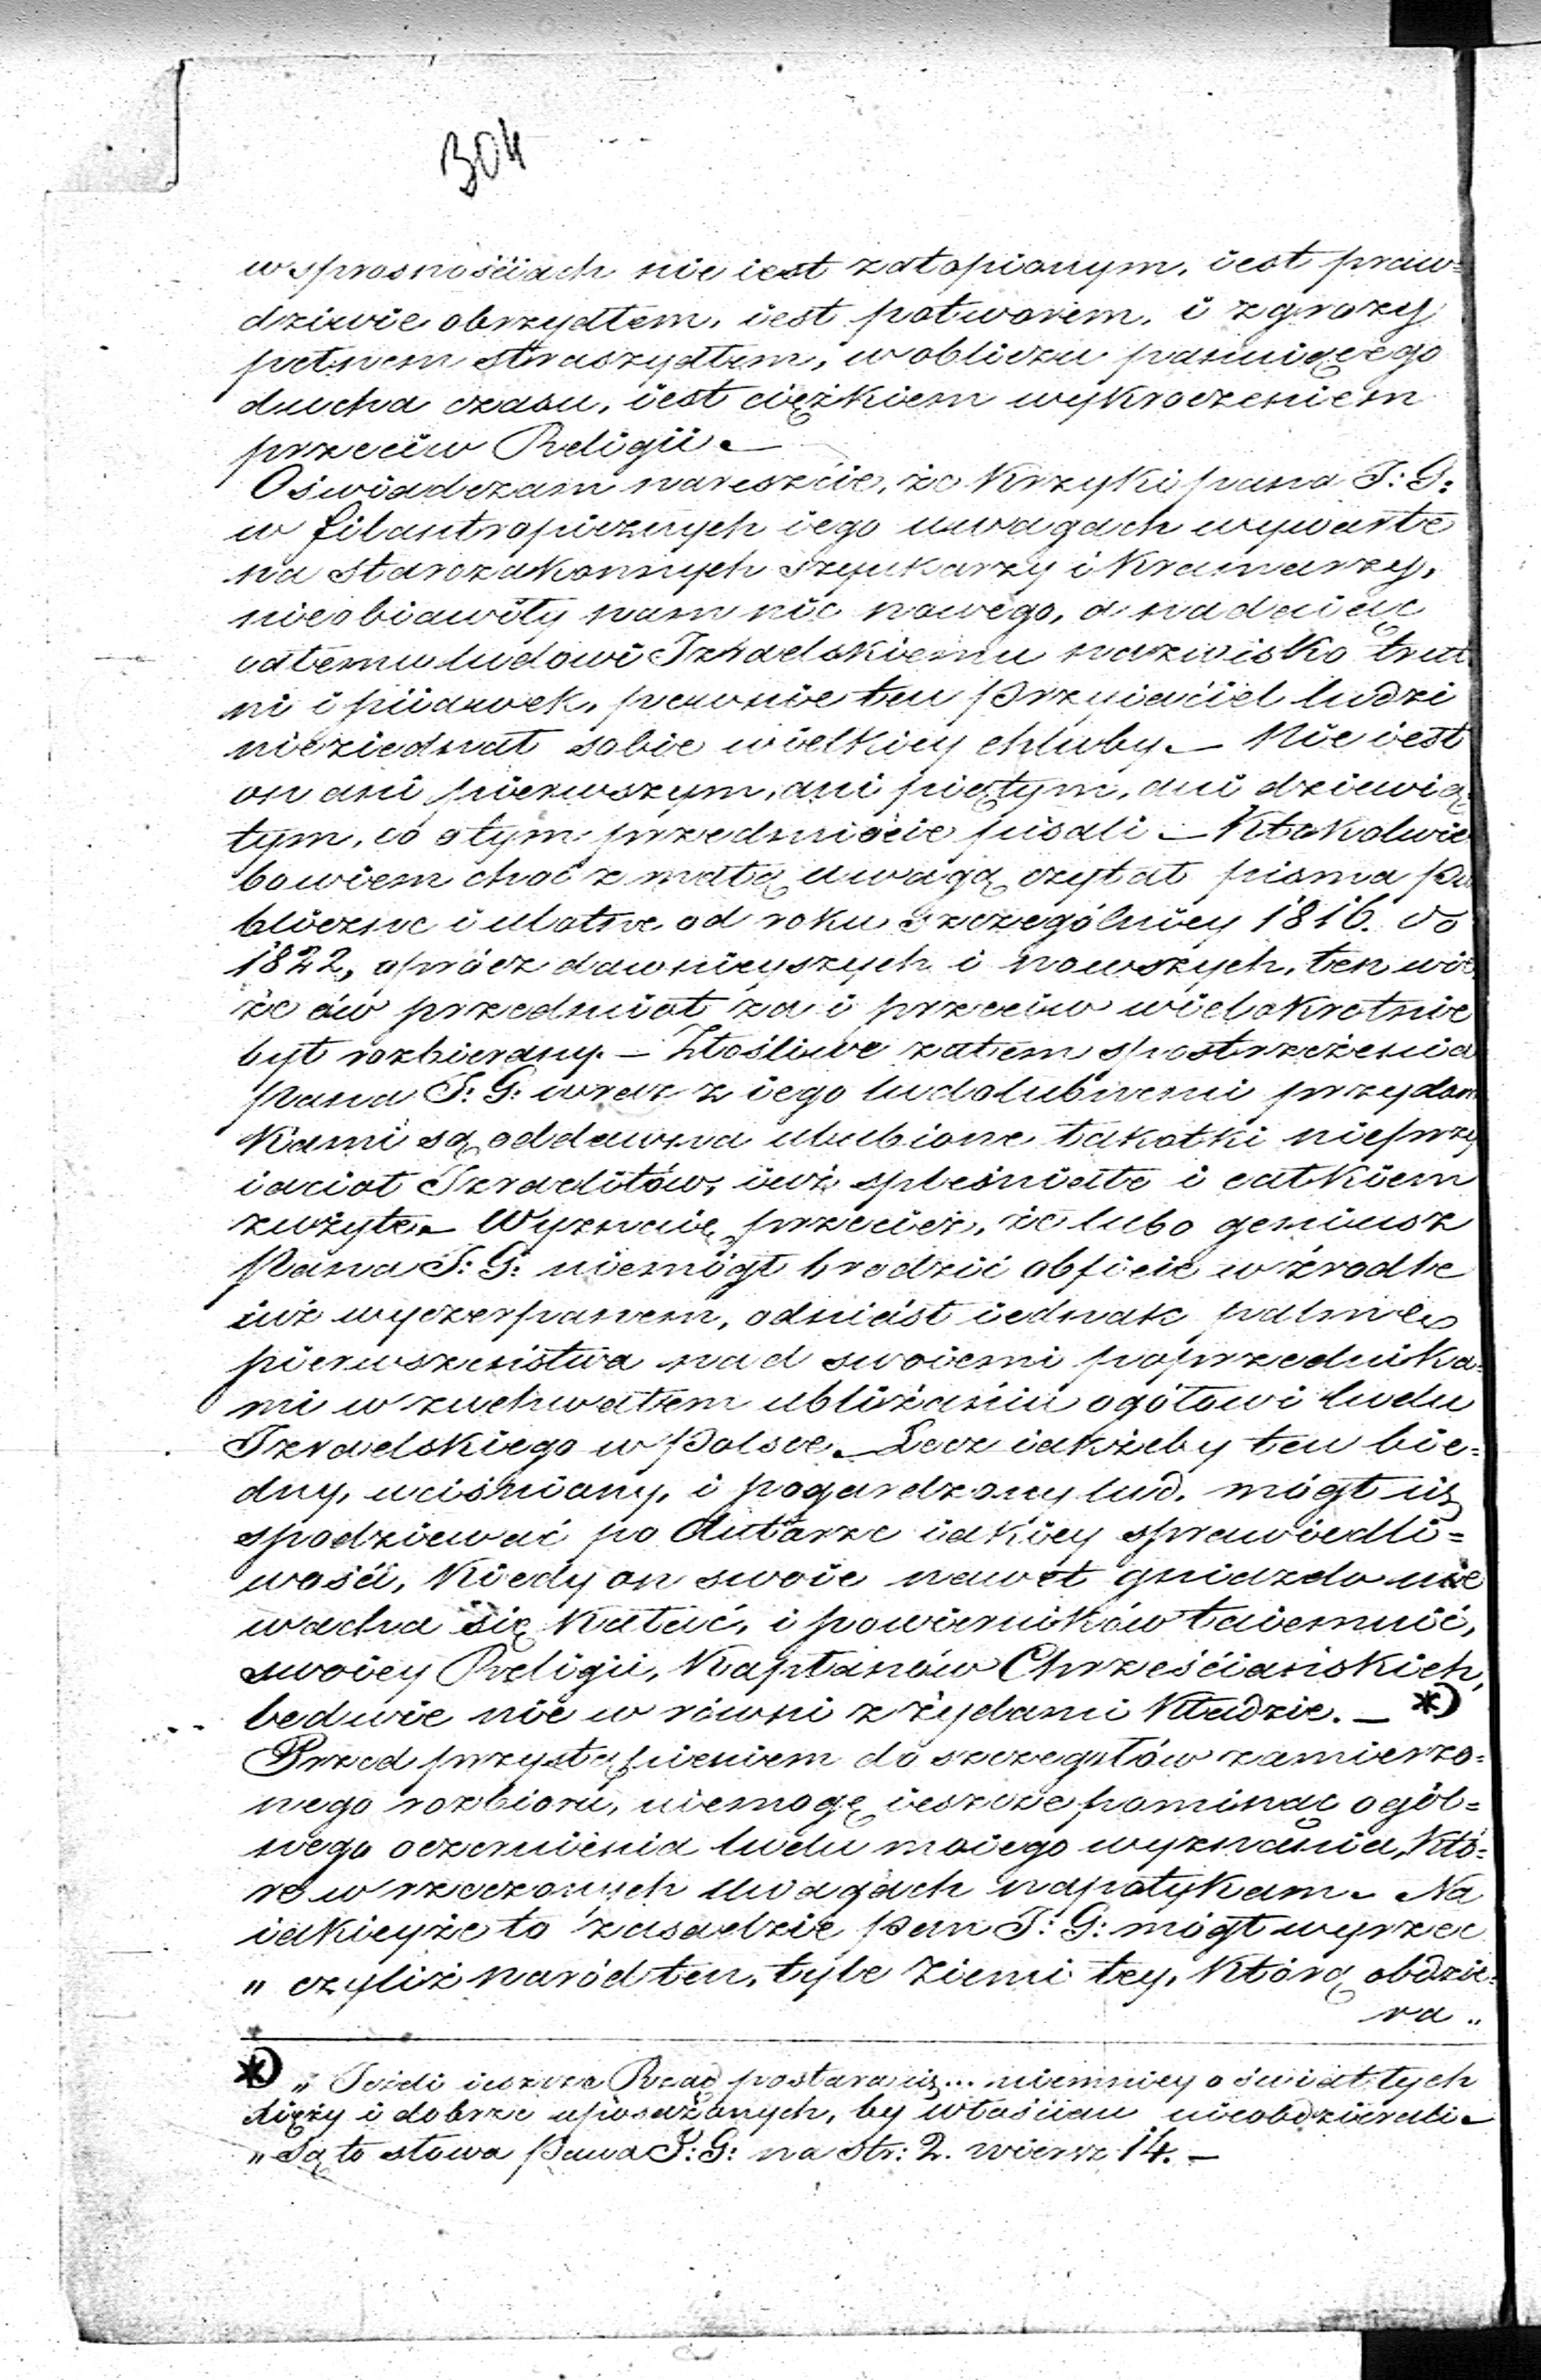 304
w sprosnościach nie iest zatopionym, iest praw=
dziwie obrzydłem, iest potworem, i zgrozy
pełnem straszydłem, w obliczu panuiącego
ducha czasu, iest ciężkiem wykroczeniem
przeciw Religii. —
Oświadczam nareszcie, że krzyki pana J: G:
w filantropicznych iego uwagach wywarte
na starozakonnych szynkarzy i kramarzy,
nieobiawiły nam nic nowego, a nadaiąc
całemu ludowi Izraelskiemu nazwisko trut
ni i piiawek, pewnie ten przyiaciel ludzi
nieziednał sobie wielkiey chluby. — Nie iest
on ani pierwszym, ani piątym, ani dziewią
tym, co o tym przedmiocie pisali — Ktokolwie
bowiem choć z małą uwagą czytał pisma pu
bliczne i ulotne od roku szczególniey 1816. do
1822, oprócz dawnieyszych i nowszych, ten wie
że ów przedmiot za i przeciw wielokrotnie
był rozbierany. — Złośliwe zatem spostrzeżenia
Pana J: G: wraz z iego ludolubnemi przydom
kami są oddawna ulubione łakotki nieprzy
iaciół Izraelitów, iuż spleśniałe i całkiem
zużyte. — Wyznaię przecież, że lubo geniusz
Pana J: G: niemógł brodzić obficie w źrodle
iuż wyczerpanem, odniósł iednak palmę
pierwszeństwa nad swoiemi poprzednika=
mi w zuchwałem ubliżaniu ogółowi ludu
Izraelskiego w Polsce. — Lecz iakżeby ten bie=
dny, uciśniony, i pogardzony lud, mógł się
spodziewać po Autorze iakiey sprawiedli=
wości, kiedy on swoie nawet gniazdo nie
waha się kalać, i powierników taiemnic,
swoiey Religii, Kapłanów Chrześciańskich,
ledwie nie w równi z żydami kładzie. — *)
Przed przystąpieniem do szczegułów zamierzo=
nego rozbioru, niemogę ieszcze pominąc ogól=
nego oczernienia ludu moiego wyznania, któ=
re w rzeczonych uwagach napotykam. — Na
iakieyże to zasadzie Pan J: G: mógł wyrzec
„ czyliż naród ten, tyle Ziemi tey, którą obdzie=
ra „
*) „ Jeżeli ieszcze Rząd postara się ... niemniey o świattych
Xięży i dobrze uposażonych, by włościan nieobdzierali —
„ Są to słowa Pana J: G: na str: 2. wiersz 14. —